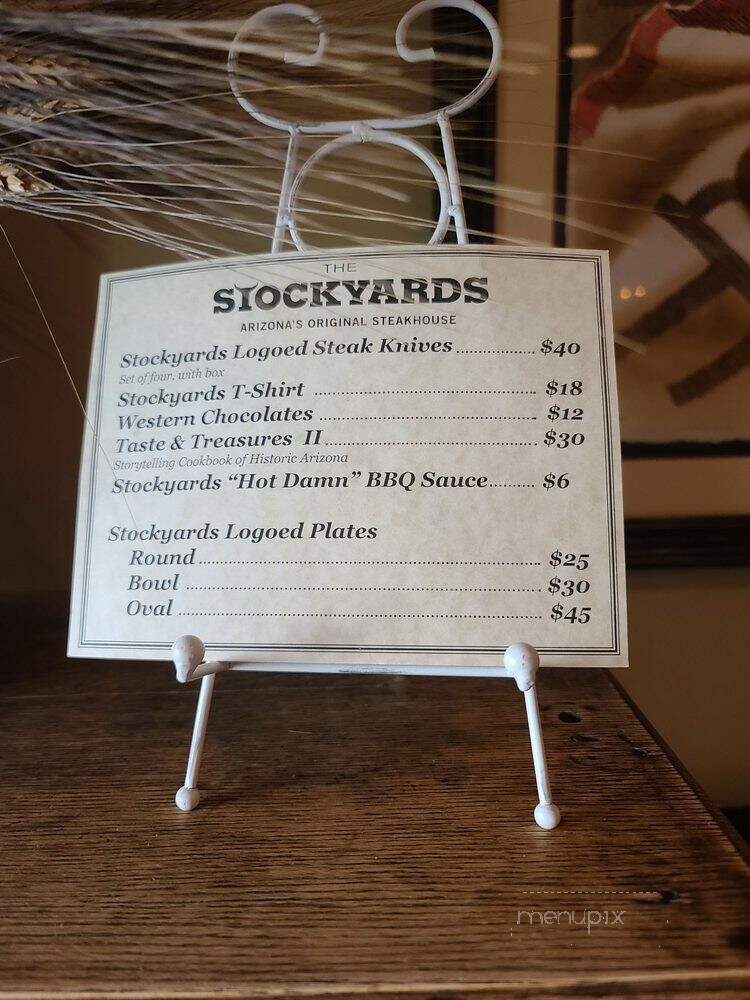 THE
STOCKYARDS
ARIZONA'S ORIGINAL STEAKHOUSE
Stockyards Logoed Steak Knives.................. $40
Set of four, with box
Stockyards T-Shirt .................................................... $18
Western Chocolates .................................................... $12
Taste & Treasures II.................................................... $30
Storytelling Cookbook of Historic Arizona
Stockyards “Hot Damn” BBQ Sauce.......... $6
Stockyards Logoed Plates
Round.................................................................... $25
Bowl .................................................................... $30
Oval .................................................................... $45
menupix